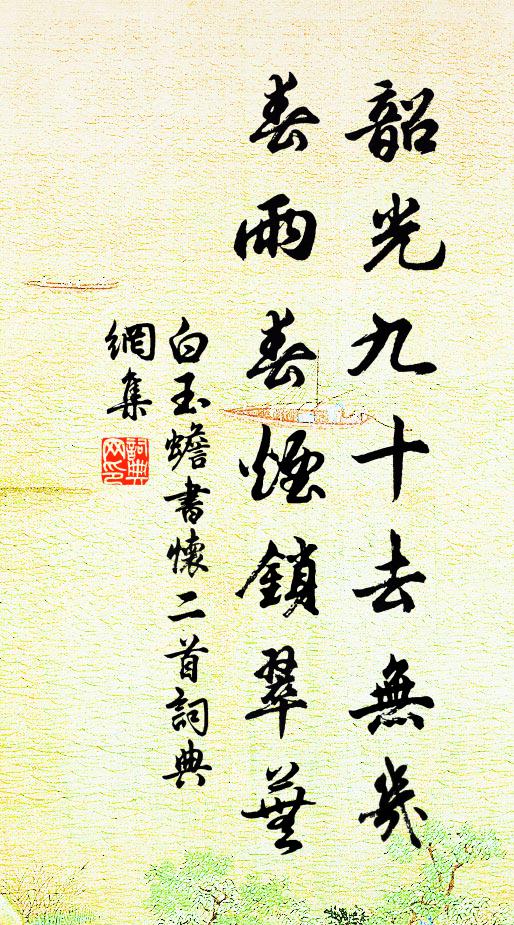 韶光九十去無幾
春雨春煙鎖翠蕪
白玉蟾書懷二首詞典
網集
詞典網印